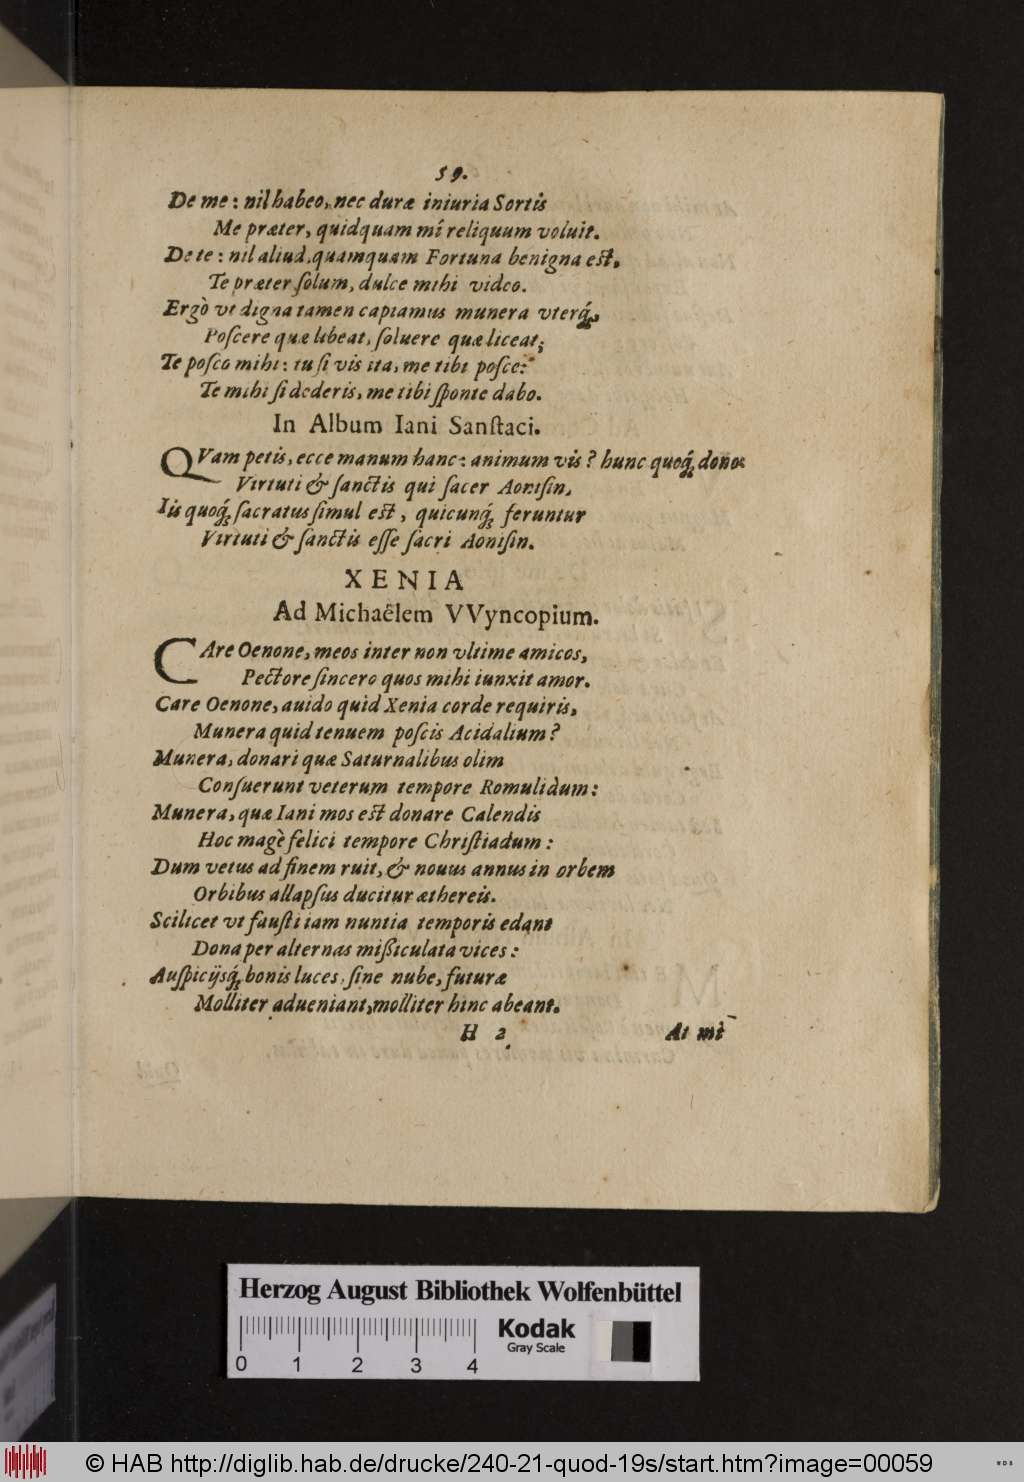 59.
De me : nil habeo, nec duræ iniuria Sortis
Me præter, quidquam mî reliquum voluit.
De te : nil aliud, quamquam Fortuna benigna est,
Te præter solum, dulce mihi video.
Ergò vt digna tamen capiamus munera vterq́;,
Poſcere quæ libeat, ſoluere quæ liceat;
Te poſco mihi : tu ſi vis ita, me tibi poſce:
Te mihi ſi dederis, me tibi ſponte dabo.
In Album Iani Sanſtaci.
QVam petis, ecce manum hanc: animum vis? hunc quoq́; dono:
Virtuti & ſanctis qui ſacer Aoniſin,
Iis quoq́; ſacratus ſimul est, quicunq́; feruntur
Virtuti & ſanctis eſſe ſacri Aoniſin.
XENIA
Ad Michaëlem VVyncopium.
CAre Oenone, meos inter non vltime amicos,
Pectore ſincero quos mihi iunxit amor.
Care Oenone, auido quid Xenia corde requiris,
Munera quid tenuem poſcis Acidalium?
Munera, donari quæ Saturnalibus olim
Conſuerunt veterum tempore Romulidum:
Munera, quæ Iani mos est donare Calendis
Hoc magè felici tempore Chriſtiadum:
Dum vetus ad finem ruit, & nouus annus in orbem
Orbibus allapſus ducitur æthereis.
Scilicet vt fauſti iam nuntia temporis edant
Dona per alternas mißiculata vices:
Auſpicijsq́; bonis luces, ſine nube, futuræ
Molliter adueniant, molliter hinc abeant.
H 2
At mî
Herzog August Bibliothek Wolfenbüttel
0 1 2 3 4
Kodak
Gray Scale
© HAB http://diglib.hab.de/drucke/240-21-quod-19s/start.htm?image=00059